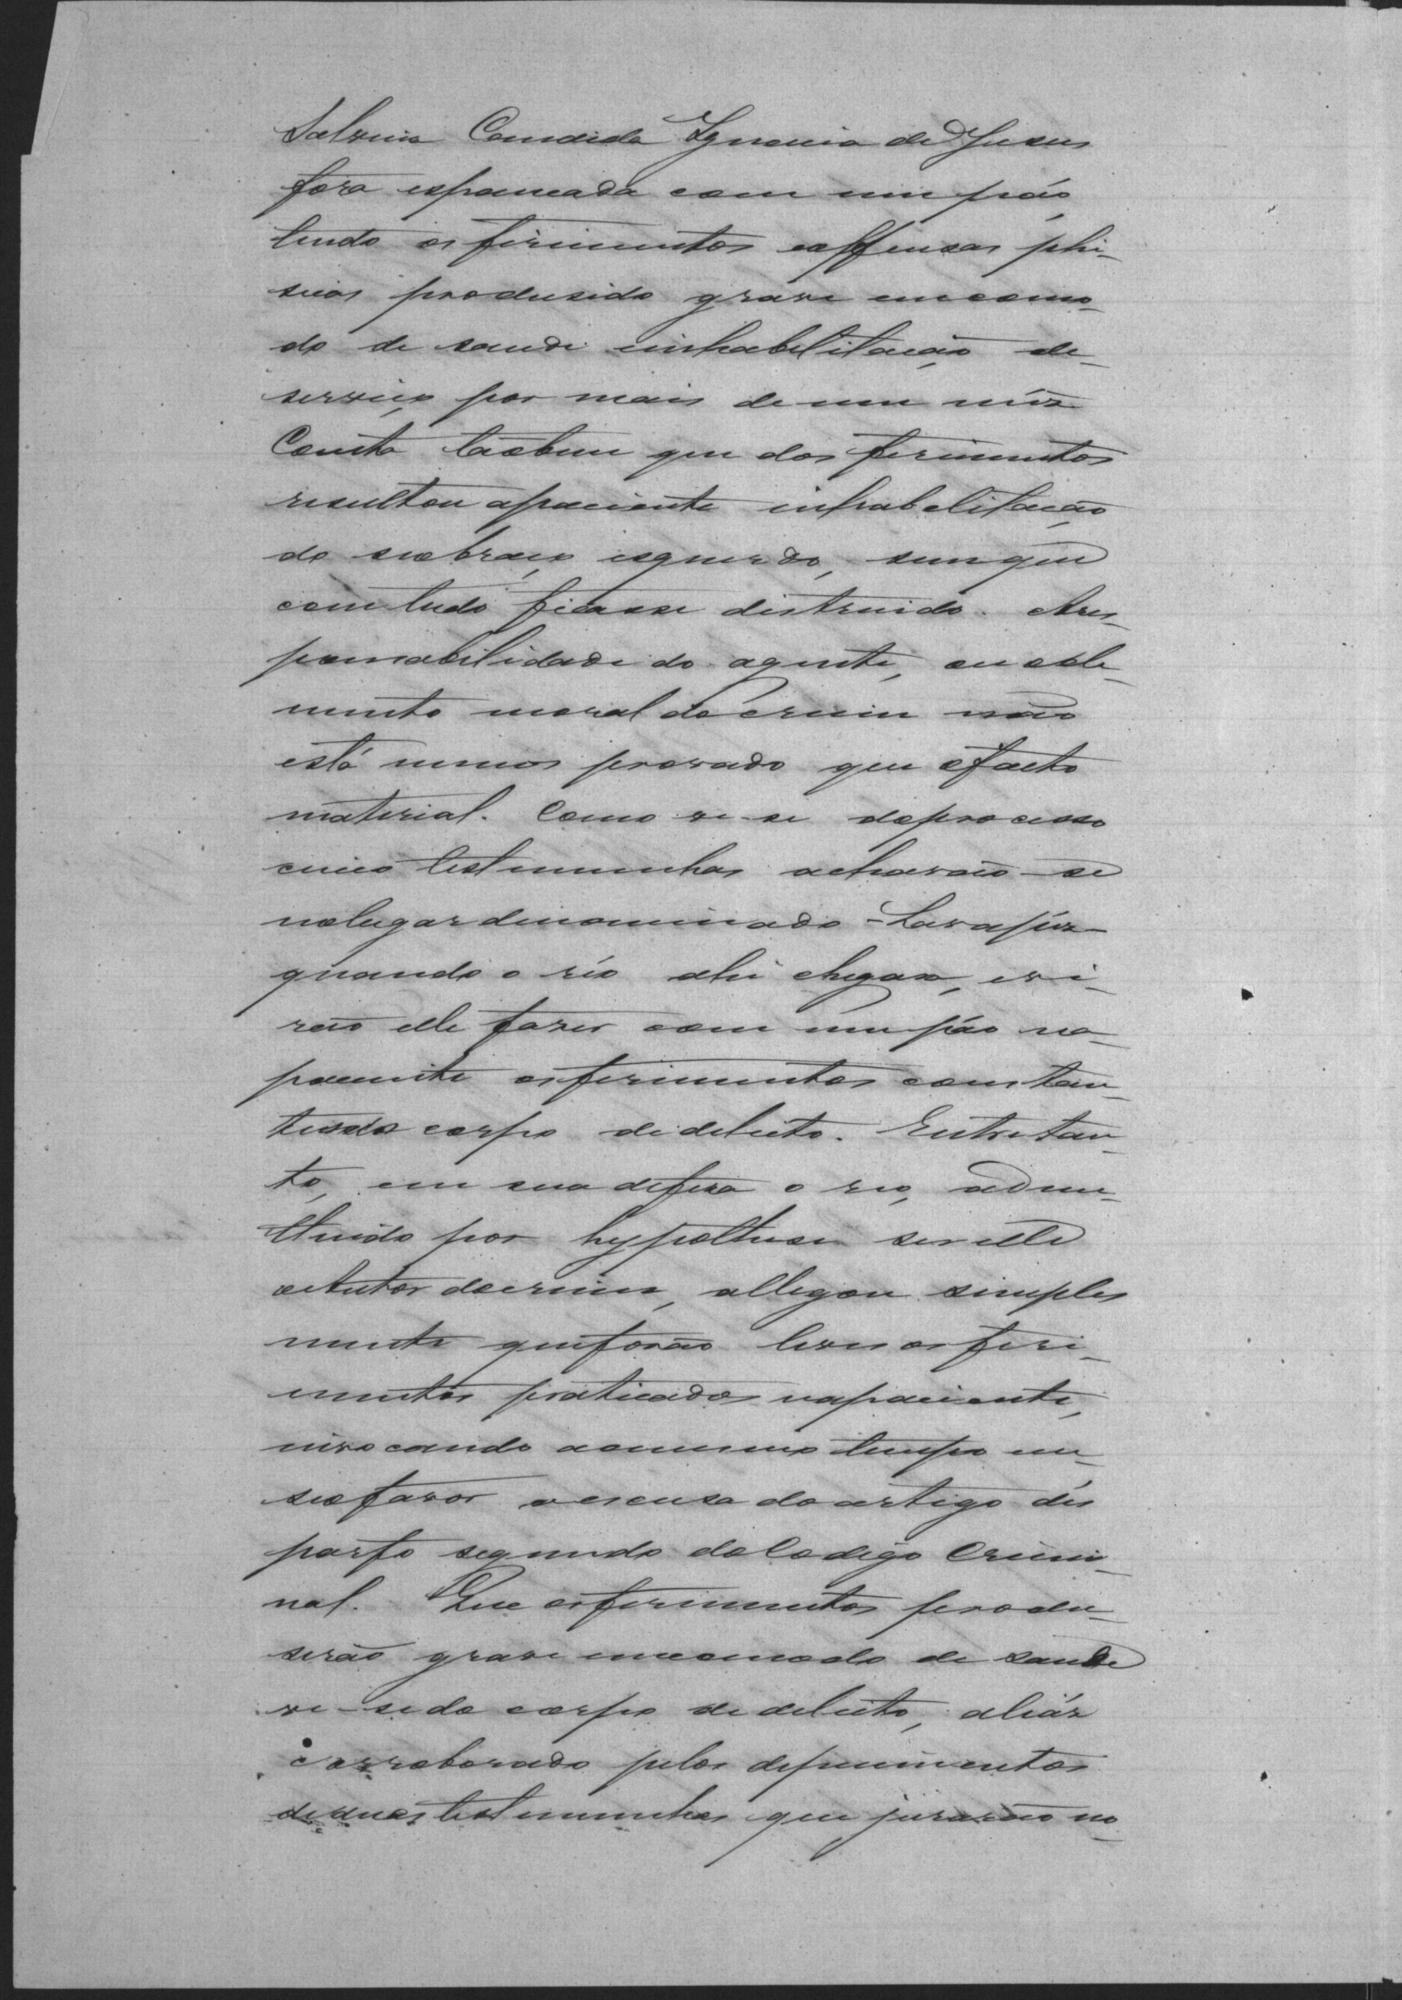 Salvina Candida Ignacia de Jesus
fora espancada com um páo,
tendo os ferimentos e offensas phi-
sicas produsido grave encomo-
do de saude e inhabilitação de
serviço por mais de um mêz
Consta taobem que dos ferimentos
resultou a paciente inhabilitação
do seo braço esquerdo, sem que
com tudo ficasse distruido. A res-
ponsabilidade do agente, ou o ele-
mento moral do crime não
está menos provado que o facto
material. Como ve-se do processo
cinco testemunhas acharão-se
no lugar denominado -Lavapéz-
quando o réo ahi chegava, e vi-
rão elle fazer com um páo na
paciente os ferimentos constan-
tes do corpo de delicto. Entretan-
to, em sua defeza o reo, adme-
ttindo por hypothese ser elle
o Autor do crime, allegou simples
mente que forão leves os feri-
mentos praticados na paciente,
invocando ao mesmo tempo em
seo favor a escusa do artigo dés
parfo segundo do Codigo Crimi-
nal. Que os ferimentos produ-
serão grave encomodo de saude
ve-se do corpo de delicto, aliáz
corroborado pelos depoimentos
de duas testemunhas que jurarão no